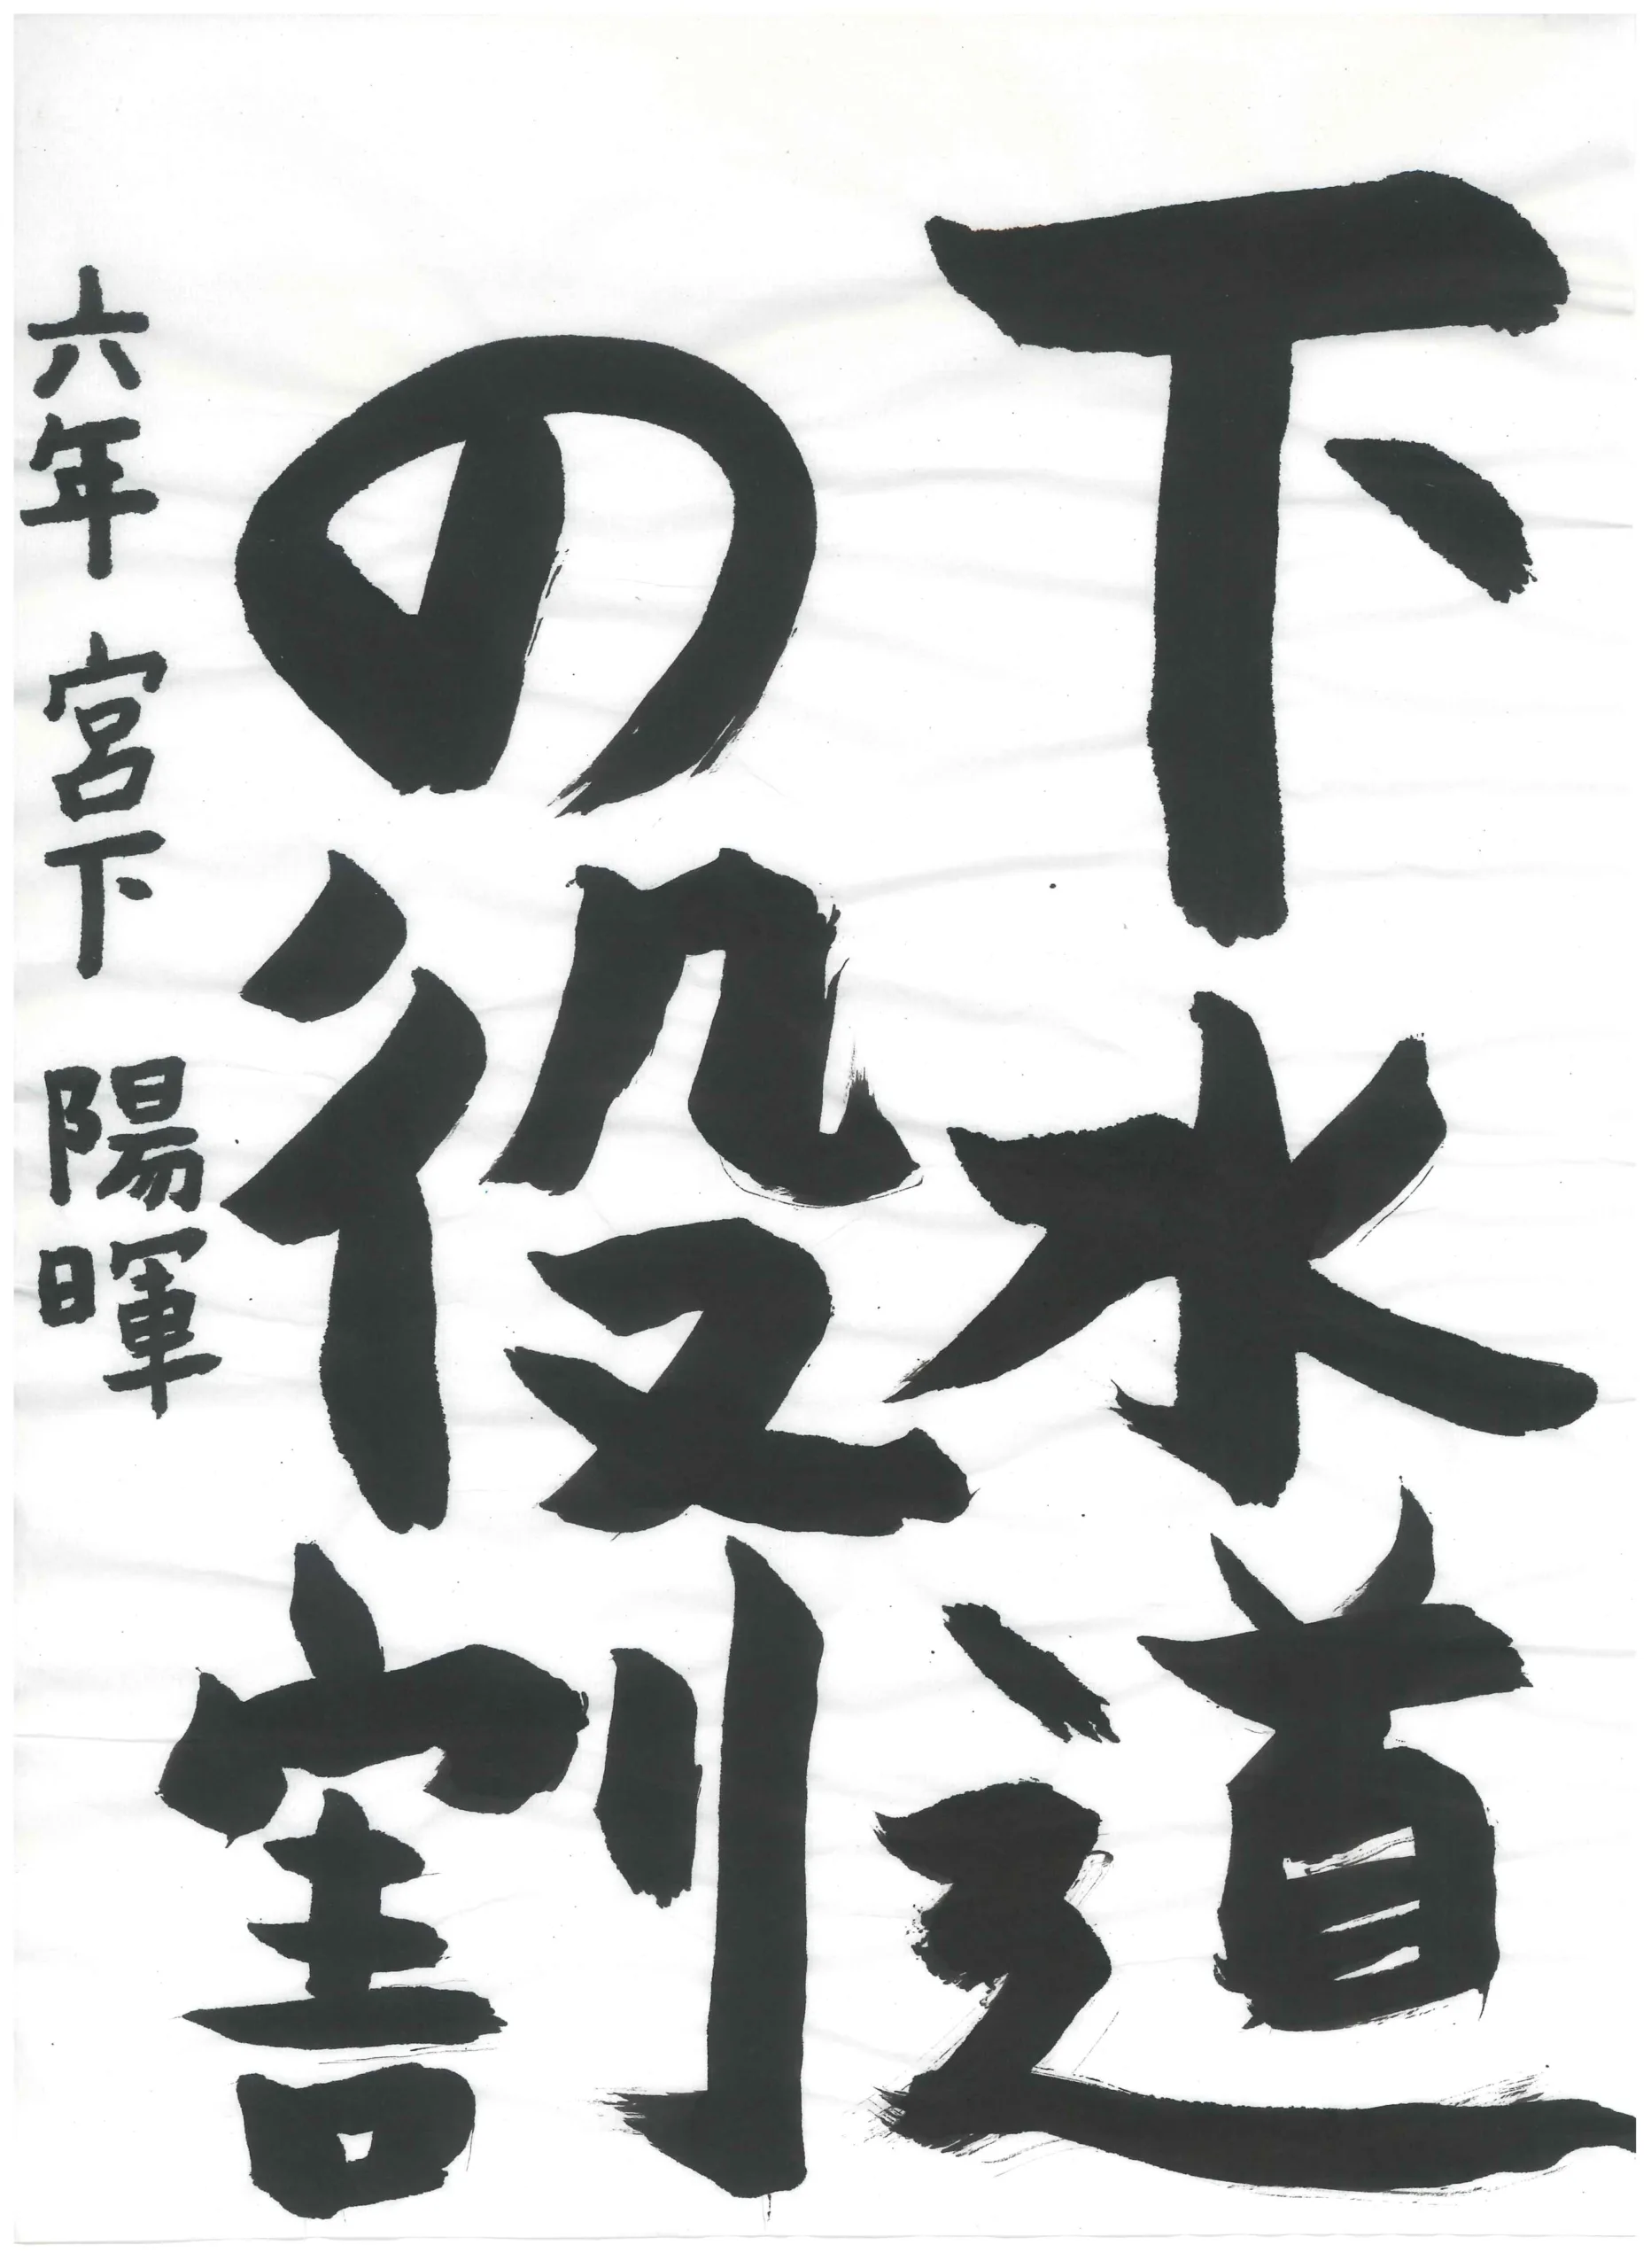 下水道
の役割
六年 宮下 陽暉